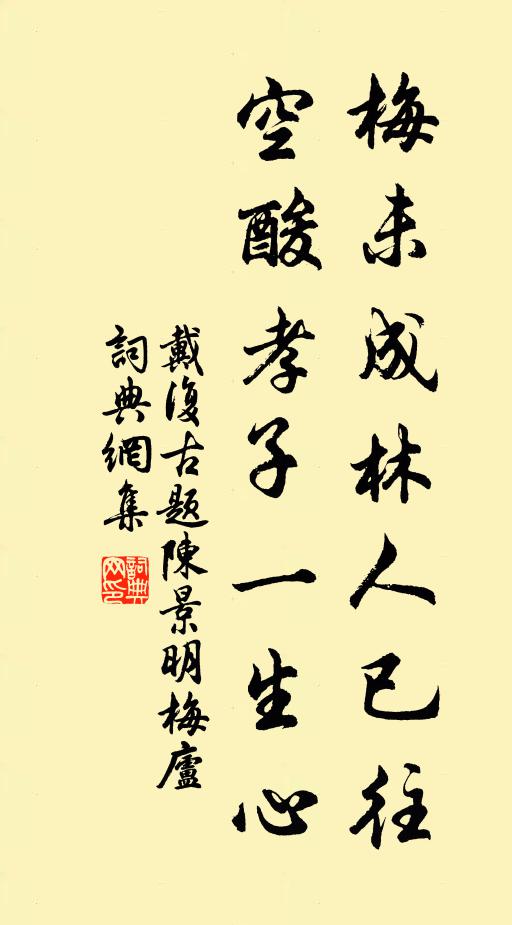 梅未成林人已往
空酸孝子一生心
戴復古題陳景明梅廬
詞典網集
詞典网印